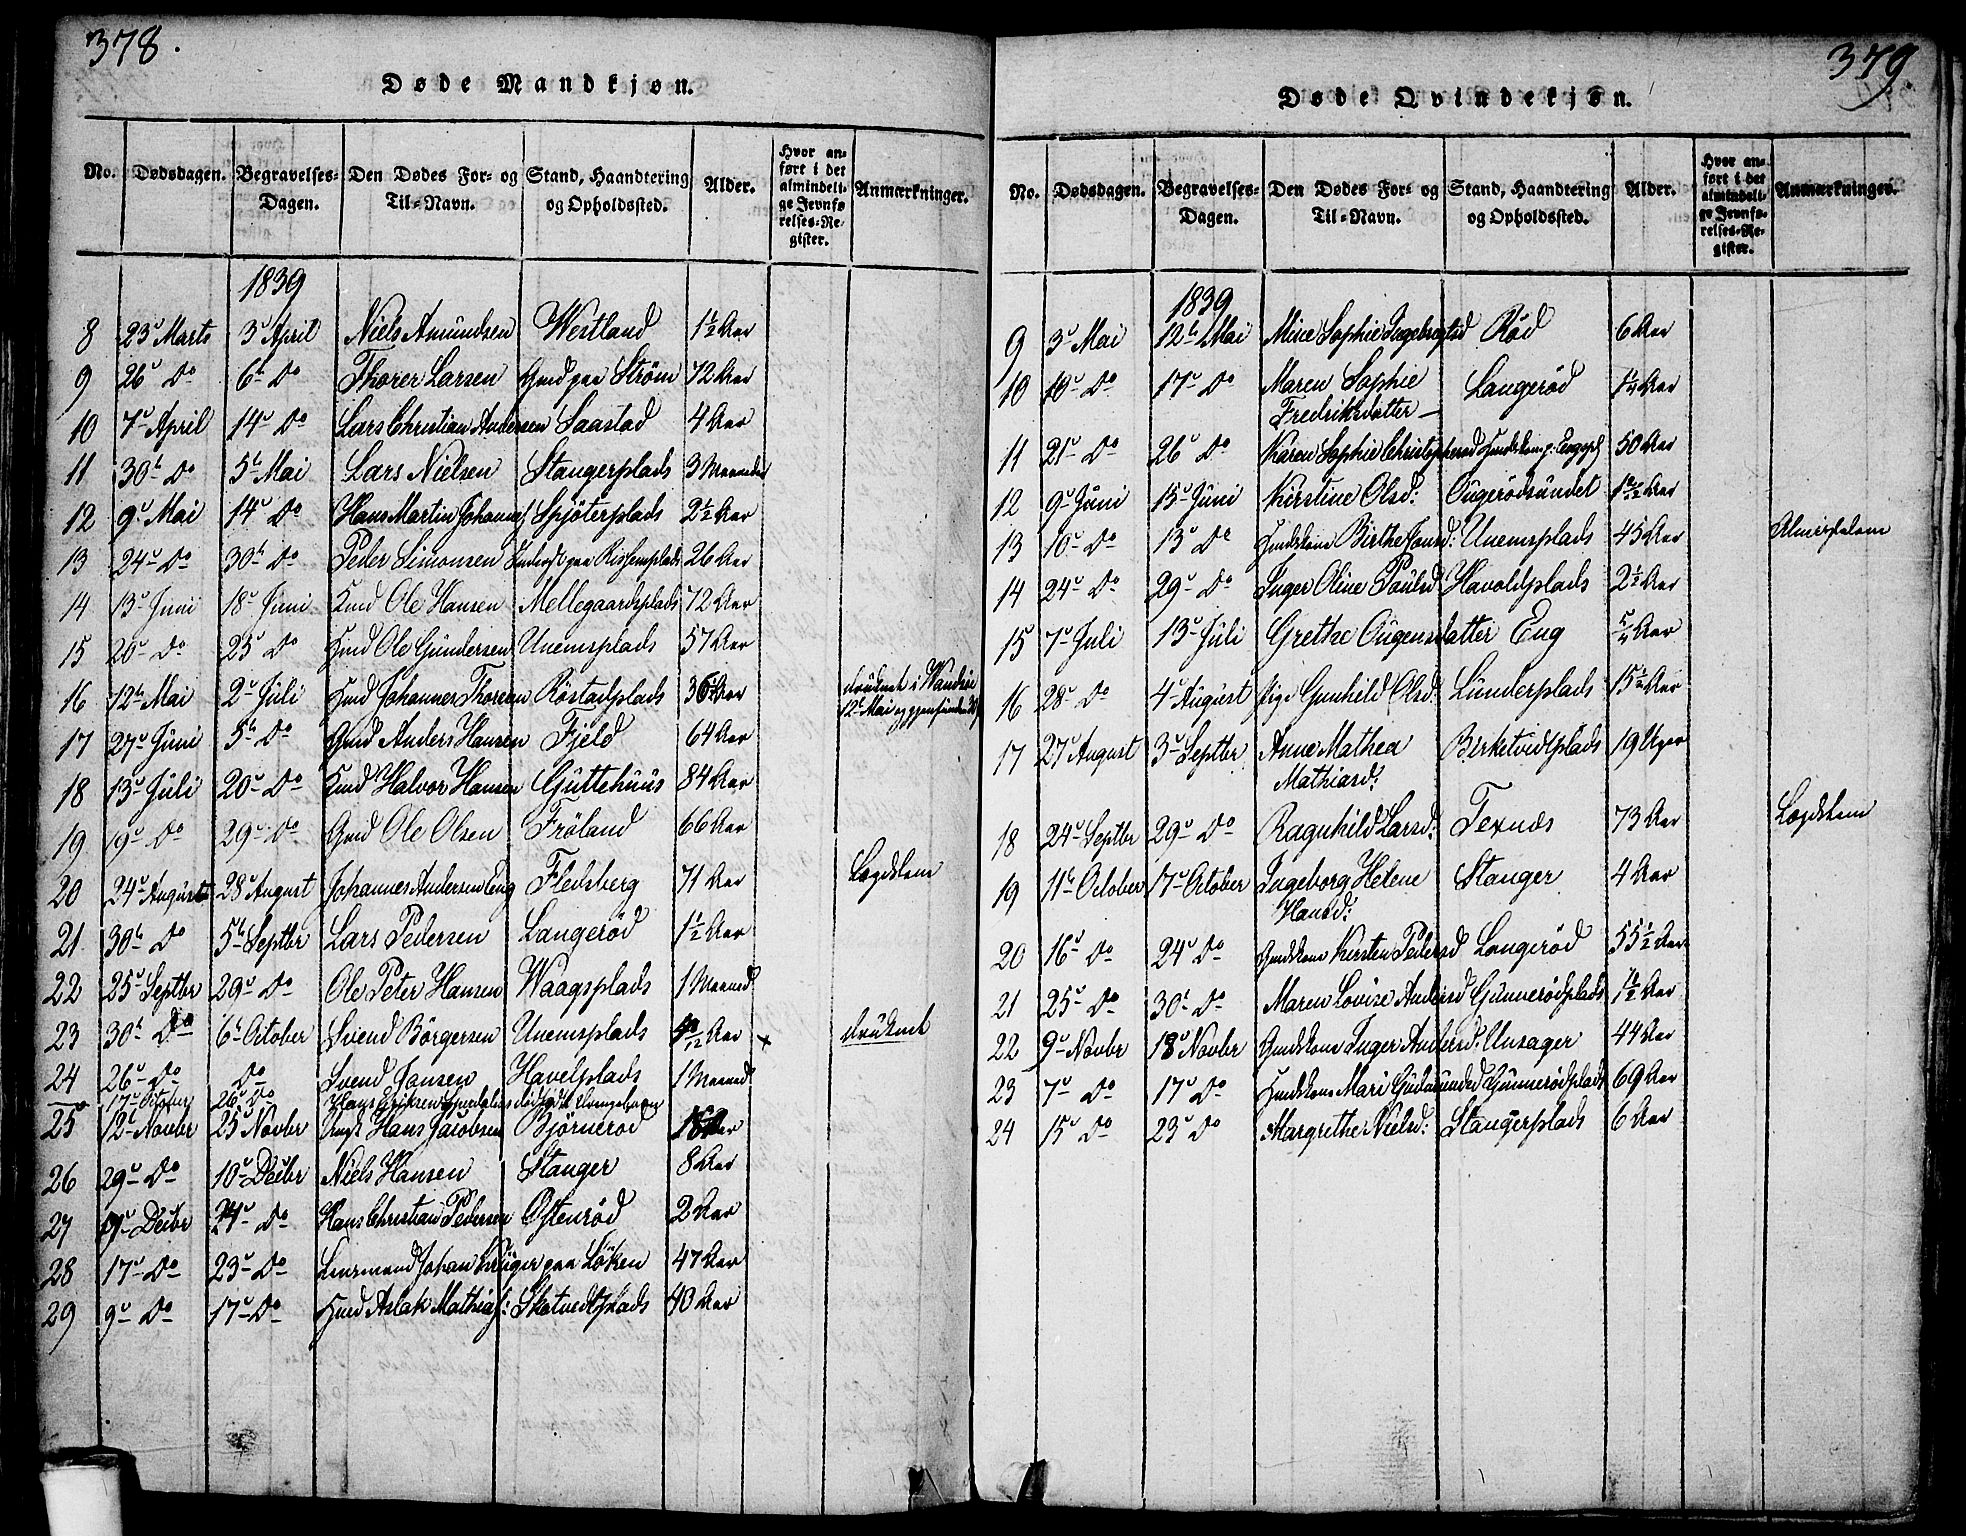 378.
Døde Mandkjøn.
No. Dødsdagen. Begravelses-Dagen. Den Dødes For- og Til-Navn. Stand, Haandtering og Opholdssted. Alder. Hvor anført i det almindelige Jevnførelses-Register. Anmærkninger.
1839
8 23d Marts 3d April Niels Amundsen Westland 1½ Aar
9 26d Do 6t Do Thorer Larsen Gmd paa Strøm 72 Aar
10 7d April 14d Do Lars Christian Andersen Saastad 4 Aar
11 30t Do 5t Mai Lars Nielsen Stangerplads 3 Maaneder
12 9d Mai 14d Do Hans Martin Johannes Spjøterplads 2½ Aar
13 24d Do 30t Do Peder Simonsen paa 26 Aar
14 13d Juni 18d Juni Hmd Ole Hansen Mellegaardsplads 72 Aar
15 20d Do 25d Do Hmd Ole Gundersen Unemsplads 57 Aar
16 12te Mai 2d Juli Hmd Johannes Thoresen Røstadplads 36 Aar druknet i Vandsøe
12t Mai
17 27d Juni 5t Do Gmd Anders Hansen Fjeld 64 Aar
18 13d Juli 20d Do Hmd Halvor Hansen Guttehuus 84 Aar
19 19d Do 29d Do Gmd Ole Olsen Frøland 66 Aar
20 24d August 28d August Johannes Andersen Eng Fledsberg 71 Aar Lægdslem
21 30t Do 5t Septbr Lars Pedersen Langerød 1½ Aar
22 25d Septbr 29d Do Ole Peter Hansen Waagsplads 1 Maaned
23 30t Do 6t October Svend Børgersen Unemsplads Aar × druknet
24 26d Do Do Svend Jansen Havelplads 1 Maaned
17d October 26d Do Hans Eriksen
25 12t Novbr 25d Novbr Hans Jacobsen Bjørnerød 18 Aar
26 29d Do 10d Decbr Niels Hansen Stanger 8 Aar
27 Decbr Do Hans Christian Pedersen Ostenrød 2 Aar
28 17d Do 23d Do Lensmand Johan Krüger paa Løken 47 Aar
29 9d Do 17d Do Hmd Aslak Mathias: Skotvedtplads 40 Aar
379.
Døde Qvindekjøn.
No. Dødsdagen. Begravelses-Dagen. Den Dødes For- og Til-Navn. Stand, Haandtering og Opholdssted. Alder. Hvor anført i det almindelige Jevnførelses-Register. Anmærkninger.
1839
9 3d Mai 12te Mai Mine Sophie Ingebregtsd Rød 6 Aar
10 10d Do 17d Do Maren Sophie Langerød 1¼ Aar
Fredriksdatter
11 21d Do 26d Do Karen Sophie Christophersd 50 Aar
12 9d Juni 15d Juni Kirstine Olsd: Ougerødsundet Aar
13 10d Do 13d Do Hmdskone Birthe Jonsd: Unemsplads 45 Aar Almisselem
14 24d Do 29d Do Inger Oline Paulsd Havoldplads 2½ Aar
15 7d Juli 13d Juli Grethe Ougensdatter Eng 5/4 Aar
16 28d Do 4d August Pige Gunhild Olsd: Lunderplads 15½ Aar
17 27d August 3d Septbr Anne Mathea Birketvidtplads 19 Uger
Mathiasd:
18 24d Septbr 29d Do Ragnhild Larsd: Texnæs 73 Aar Lægdslem
19 11te October 17d October Ingeborg Helene Stanger 4 Aar
Hansd:
20 16d Do 24d Do Gmdskone Kirsten Pedersd Langerød 55½ Aar
21 25d Do 30t Do Maren Lovise Andersd Gunnerødplads 1½ Aar
22 9d Novbr 18d Novbr Gmdskone Inger Andersd: Unsager 44 Aar
23 7d Do 17d Do Hmdskone Mari Gudmundsd Gunnerødplads 69 Aar
24 15d Do 23d Do Margrethe Nielsd: Stangerplads 6 Aar